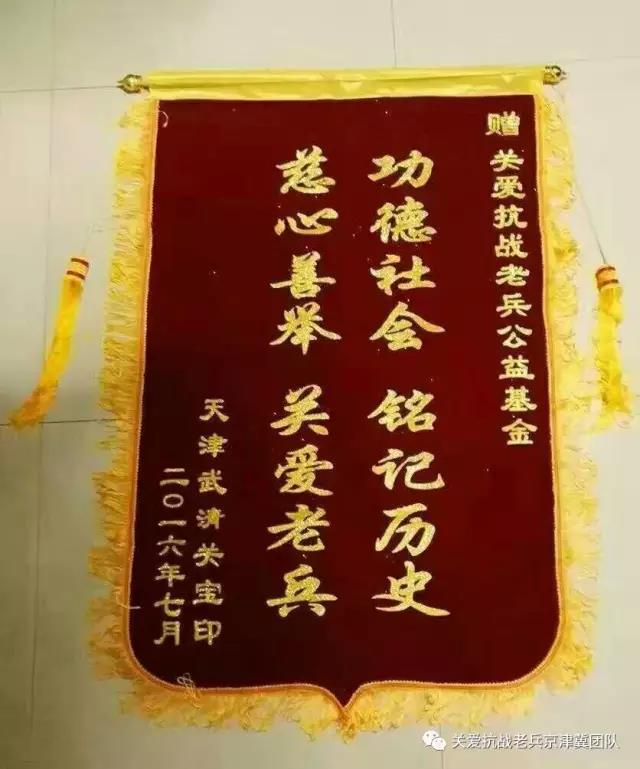 赠 关爱抗战老兵公益基金
功德社会 铭记历史
慈心善举 关爱老兵
天津武清关宝印
二〇一六年七月
关爱抗战老兵京津冀团队